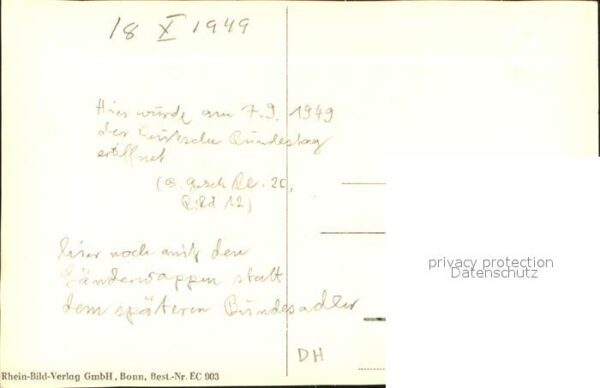 18 X 1949
Hier wurde am 7.9.1949
der Deutsche Bundestag
eröffnet
20,
Bild 12)
hier noch mit den
Länderwappen statt
dem späteren Bundesadler
privacy protection
Datenschutz
DH
Rhein-Bild-Verlag GmbH, Bonn, Best.-Nr. EC 903